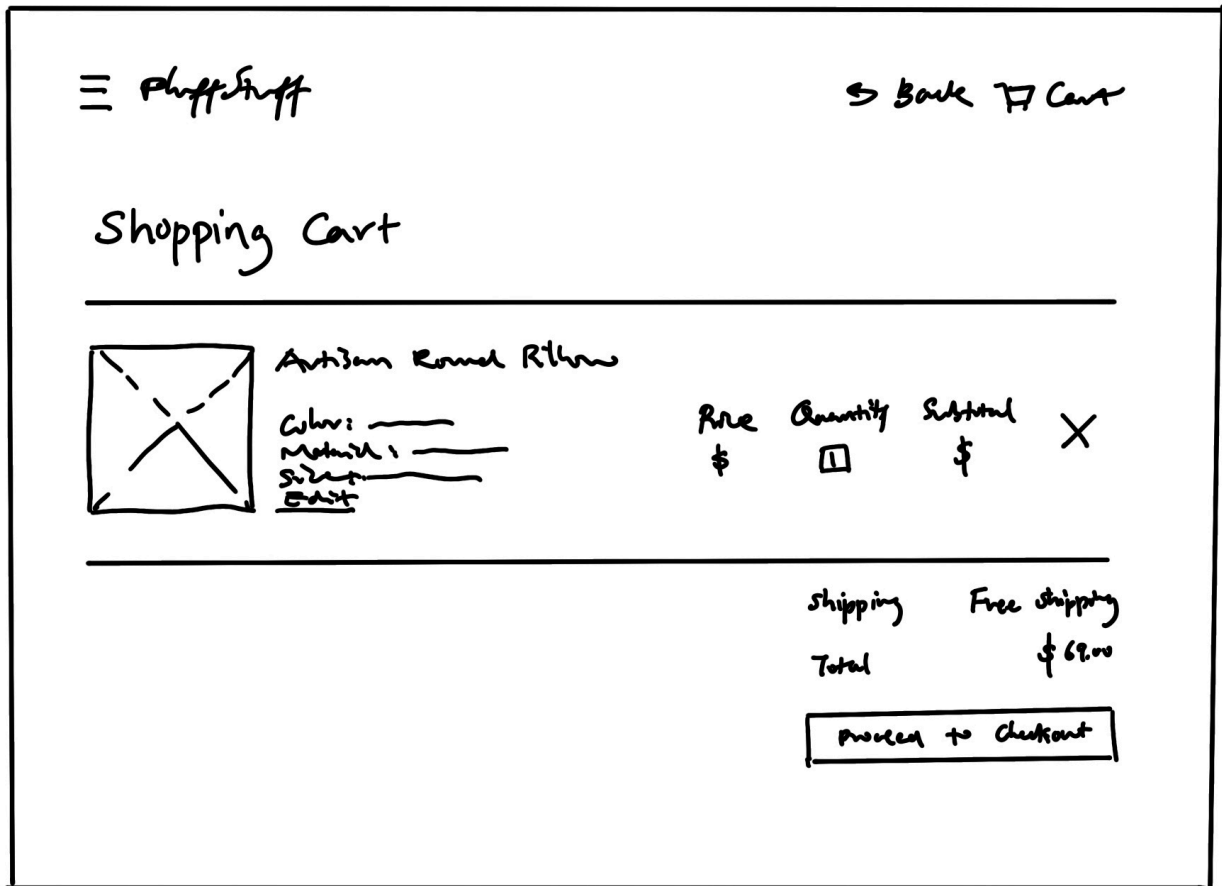 FluffStuff
Back Cart
Shopping Cart
Artisan Round Pillow
Color:
Material:
Size:
Edit
Price Quantity Subtotal
$ 1 $
Shipping Free shipping
Total $69.00
Proceed to Checkout